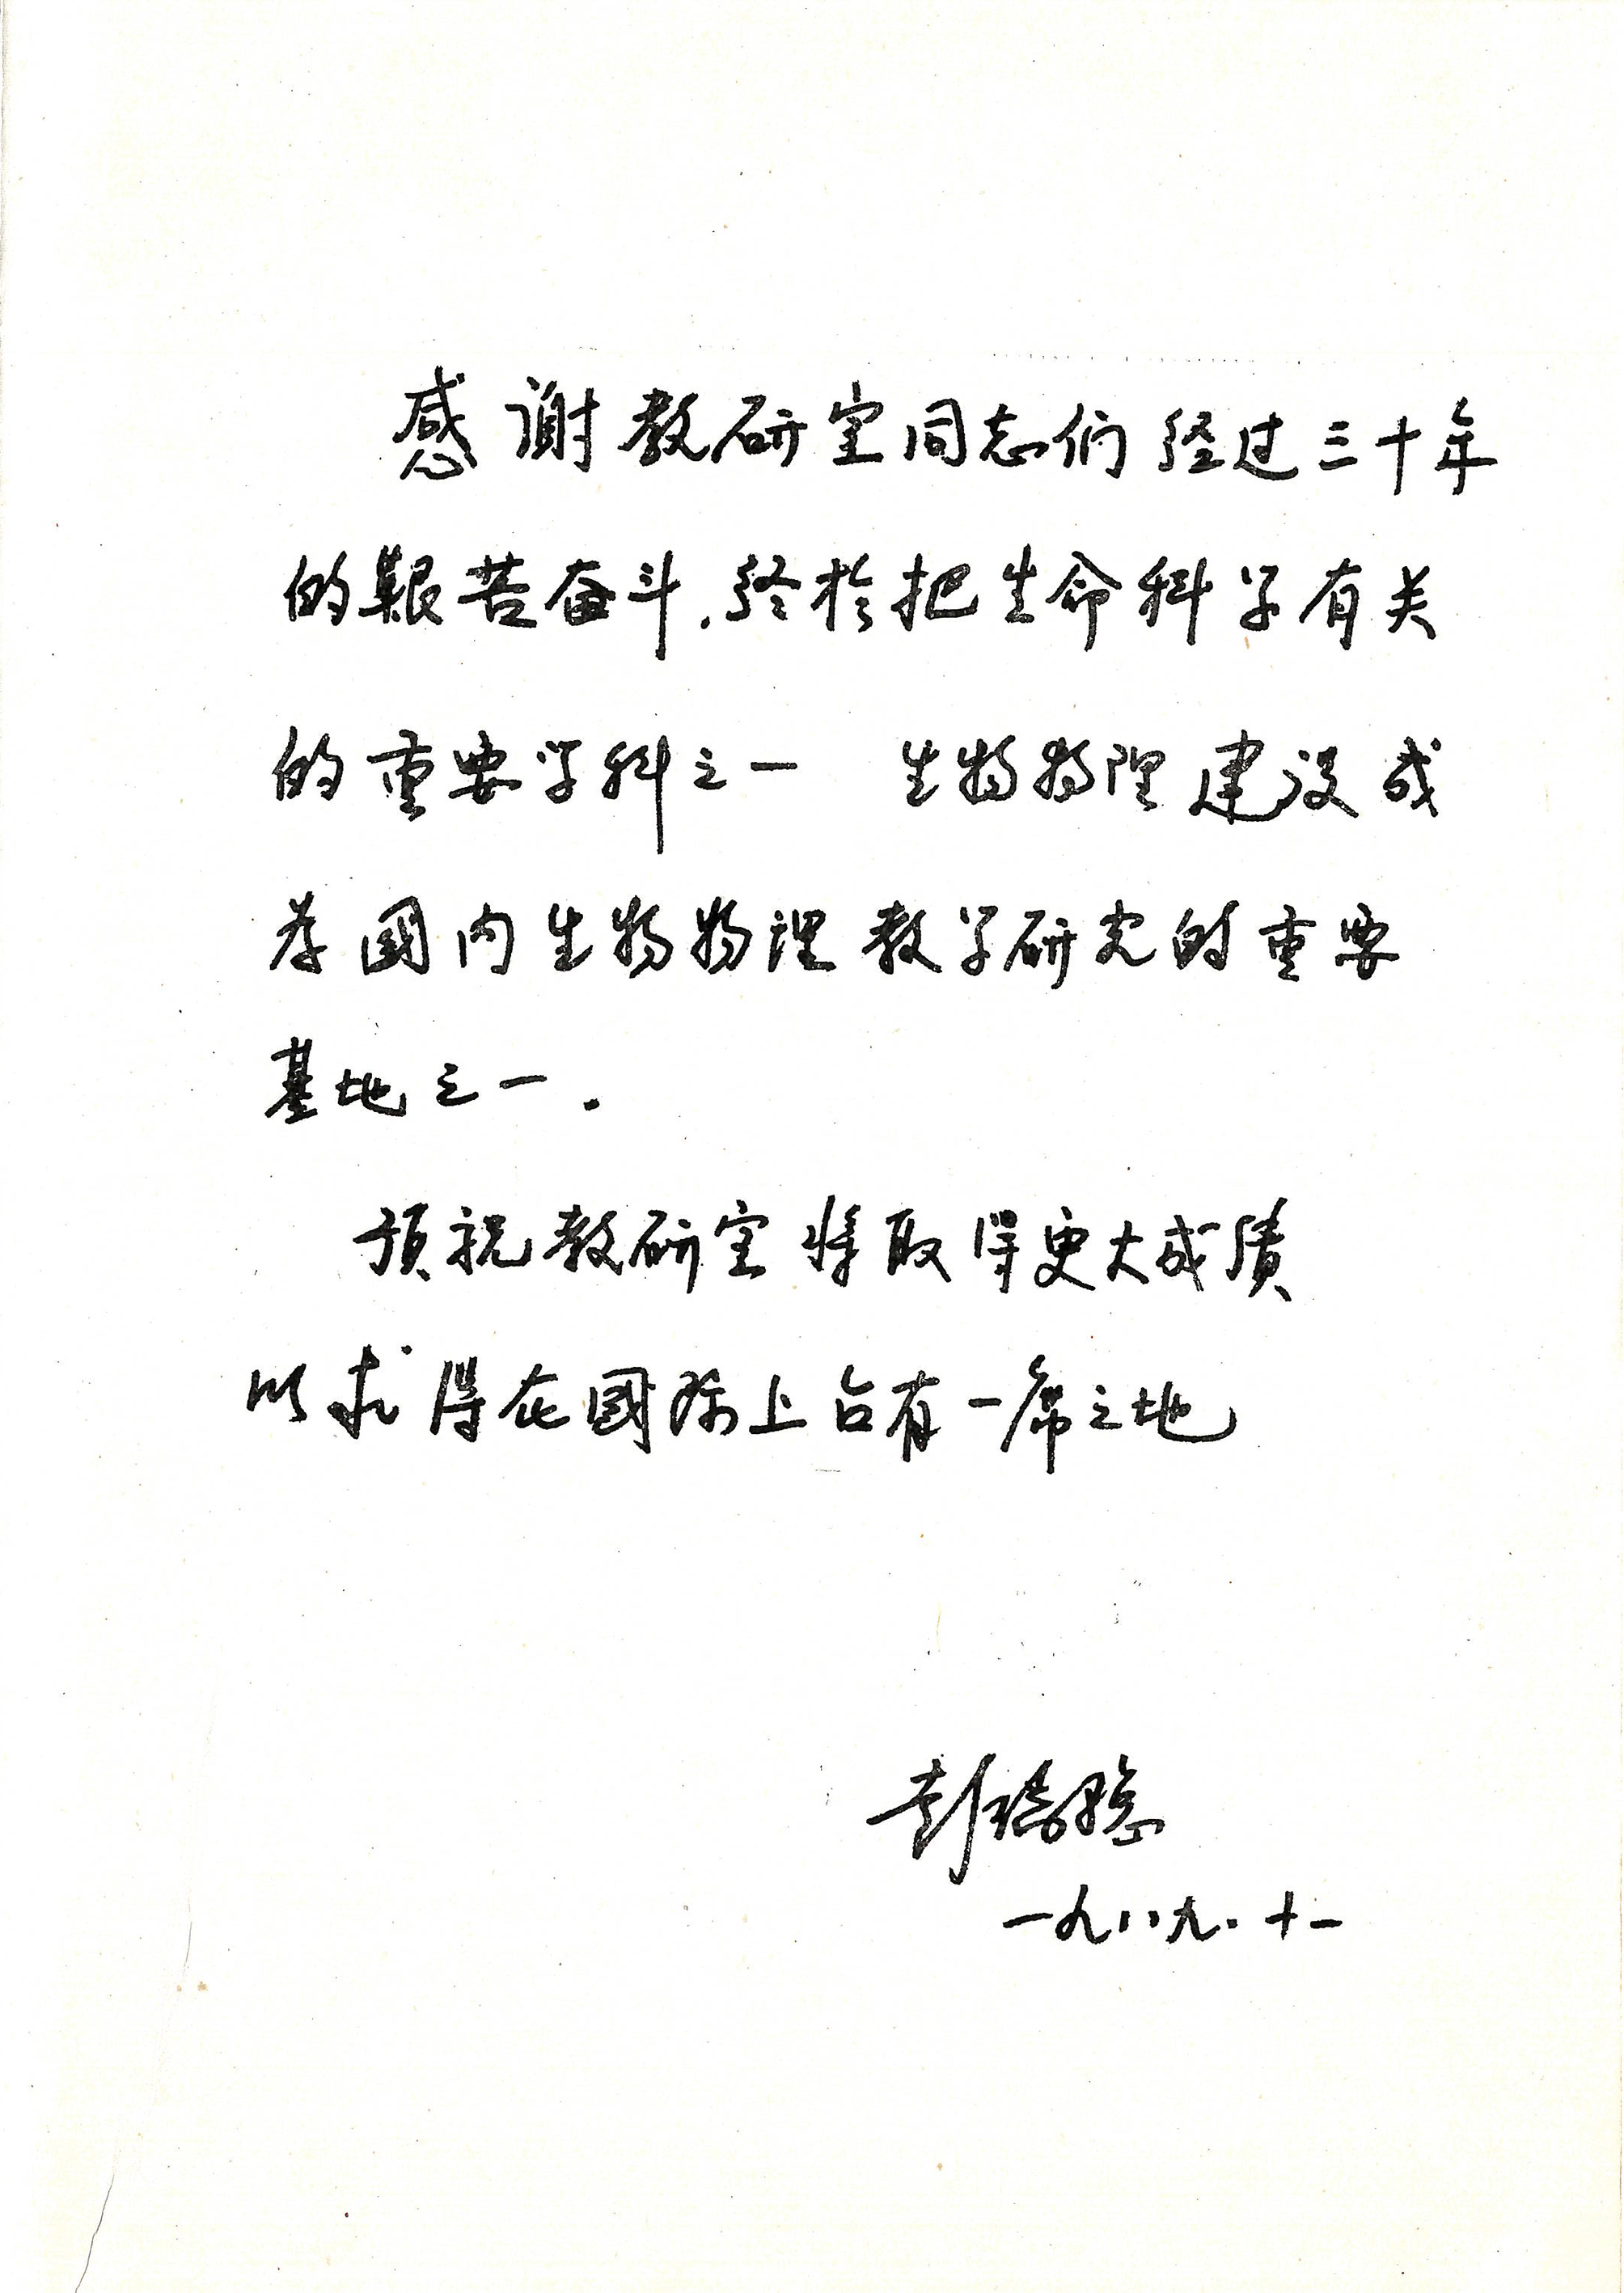 感谢教研室同志们经过三十年
的艱苦奋斗.终於把生命科学有关
的重要学科之一 生物物理建设成
为國内生物物理教学研究的重要
基地之一.
预祝教研室将取得更大成绩
以求得在國际上占有一席之地
彭瑞骢
一九八九.十一